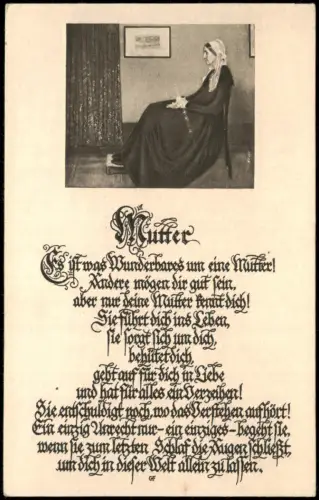 Mutter
Es ist was Wunderbares um eine Mutter!
Andere mögen dir gut sein,
aber nur deine Mutter kennt dich!
Sie führt dich ins Leben,
sie sorgt sich um dich,
behütet dich,
geht auf für dich in Liebe
und hat für alles ein Verzeihen!
Sie entschuldigt noch, wo das Verstehen aufhört!
Ein einzig Unrecht nur - ein einziges - begeht sie,
wenn sie zum letzten Schlaf die Augen schließt,
um dich in dieser Welt allein zu lassen.